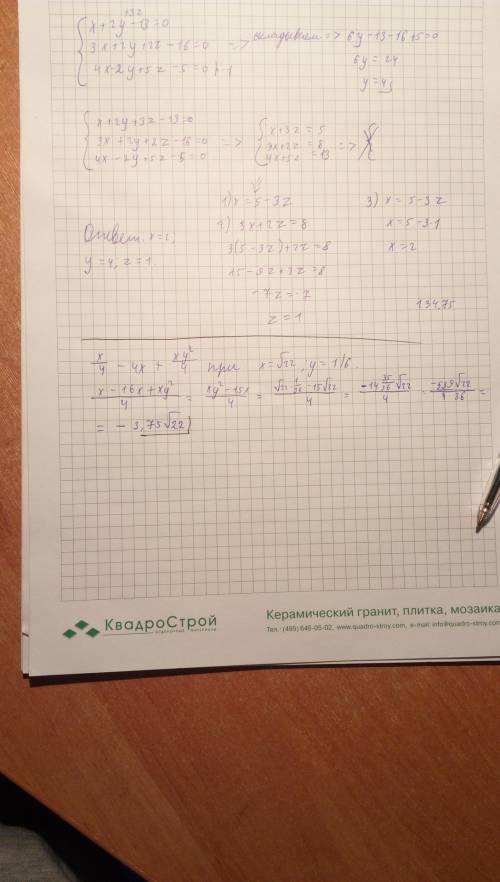 +3z
x + 2y - 13 = 0
3x + 2y + 2z - 16 = 0 => складываем => 6y - 13 - 16 + 5 = 0
4x - 2y + 5z - 5 = 0 | · -1
6y = 24
y = 4
x + 2y + 3z - 13 = 0
3x + 2y + 2z - 16 = 0 =>
4x - 2y + 5z - 5 = 0
x + 3z = 5
3x + 2z = 8 =>
4x + 5z = 13
1) x = 5 - 3z
2) 3x + 2z = 8
3(5 - 3z) + 2z = 8
15 - 9z + 2z = 8
-7z = -7
z = 1
3) x = 5 - 3z
x = 5 - 3·1
x = 2
Ответ: x = 2,
y = 4, z = 1
134,75
x/4 - 4x + xy²/4 при x = √22; y = 1/6.
(x - 16x + xy²)/4 = (xy² - 15x)/4 = (√22 · 1/36 - 15√22)/4 = (-14 35/36 √22)/4 = -539√22/(4·36) =
= -3,75√22
КвадроСтрой
ОТДЕЛОЧНЫЕ МАТЕРИАЛЫ
Керамический гранит, плитка, мозаика
Тел.: (495) 646-05-02, www.quadro-stroy.com, e-mail: info@quadro-stroy.com